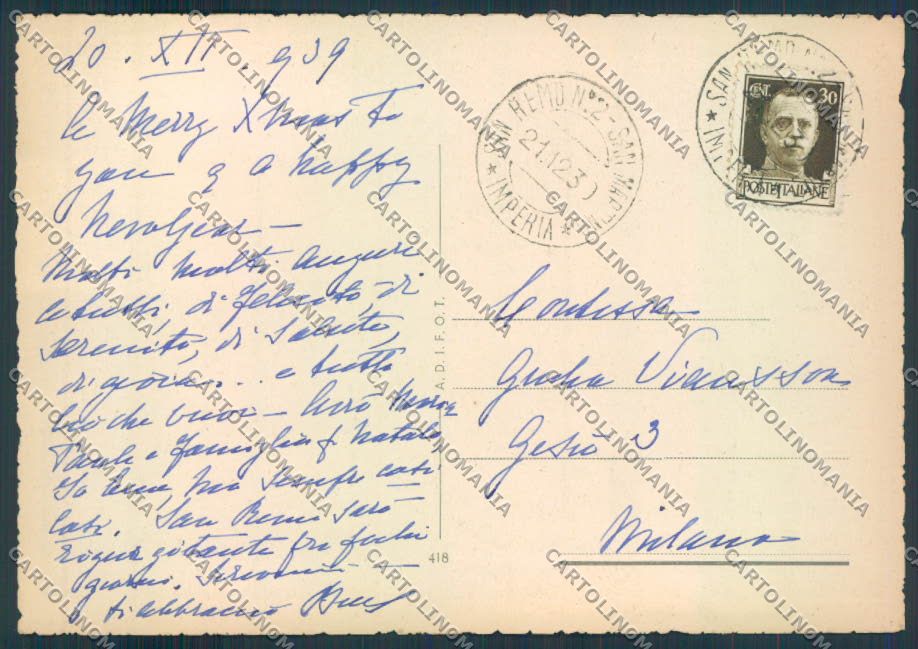 20 . XII . 939
a Merry Xmas to
you & a happy
New Year –
Molti molti auguri
a tutti, di felicità, di
serenità, di salute,
di gioia . . . e tutto
ciò che vuoi –
e famiglia Natale
Io bene, ma sempre così
così. San Remo sarà
fra pochi
giorni. Scrivimi –
ti abbraccio
SAN REMO N°2 - SAN MARTINO
21.12.39
* IMPERIA *
CENT. 30
POSTE ITALIANE
A.D.I.F.O.T.
418
Contessa
Giulia
Gesù 3
Milano
CARTOLINOMANIA